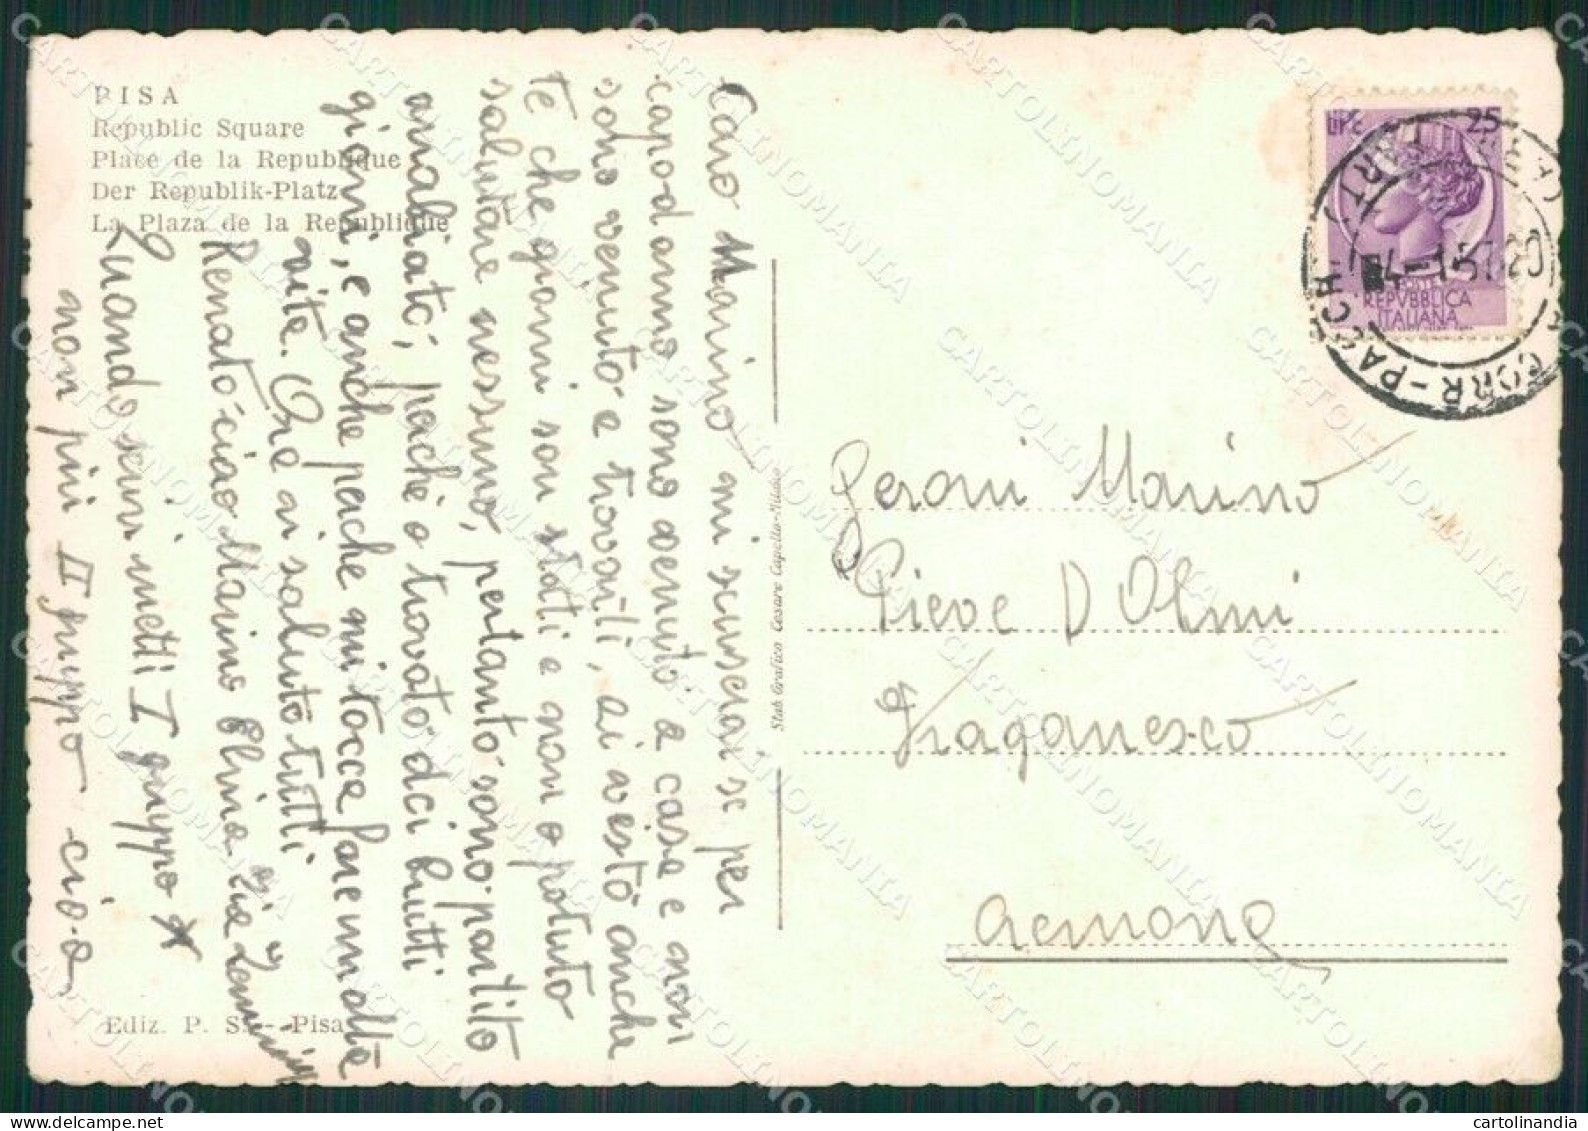 PISA
Republic Square
Place de la Republique
Der Republik-Platz
La Plaza de la Republique
Caro Marino mi scuserai se per
capodanno sono venuto a casa e non
sono venuto e trovarti, ai visto anche
te che giorni son stati e non o potuto
salutare nessuno, pertanto sono partito
arrabiato, perche o trovato dei brutti
giorni, e anche perche mi tocca fare molta
vita. Ora ai saluto tutti
Renato ciao Marino Elina zia
Quando scrivi metti I gruppo
non più II gruppo ciao
Ediz. P. S. - Pisa
Stab Grafico Cesare Capello-Milano
LIRE 25
POSTE
REPVBBLICA
ITALIANA
CORR-PACCHI
4-1-57.20
Geroni Marino
Pieve D Olmi
Fraganesco
Cremona
CARTOLINOMANIA
cartolinandia